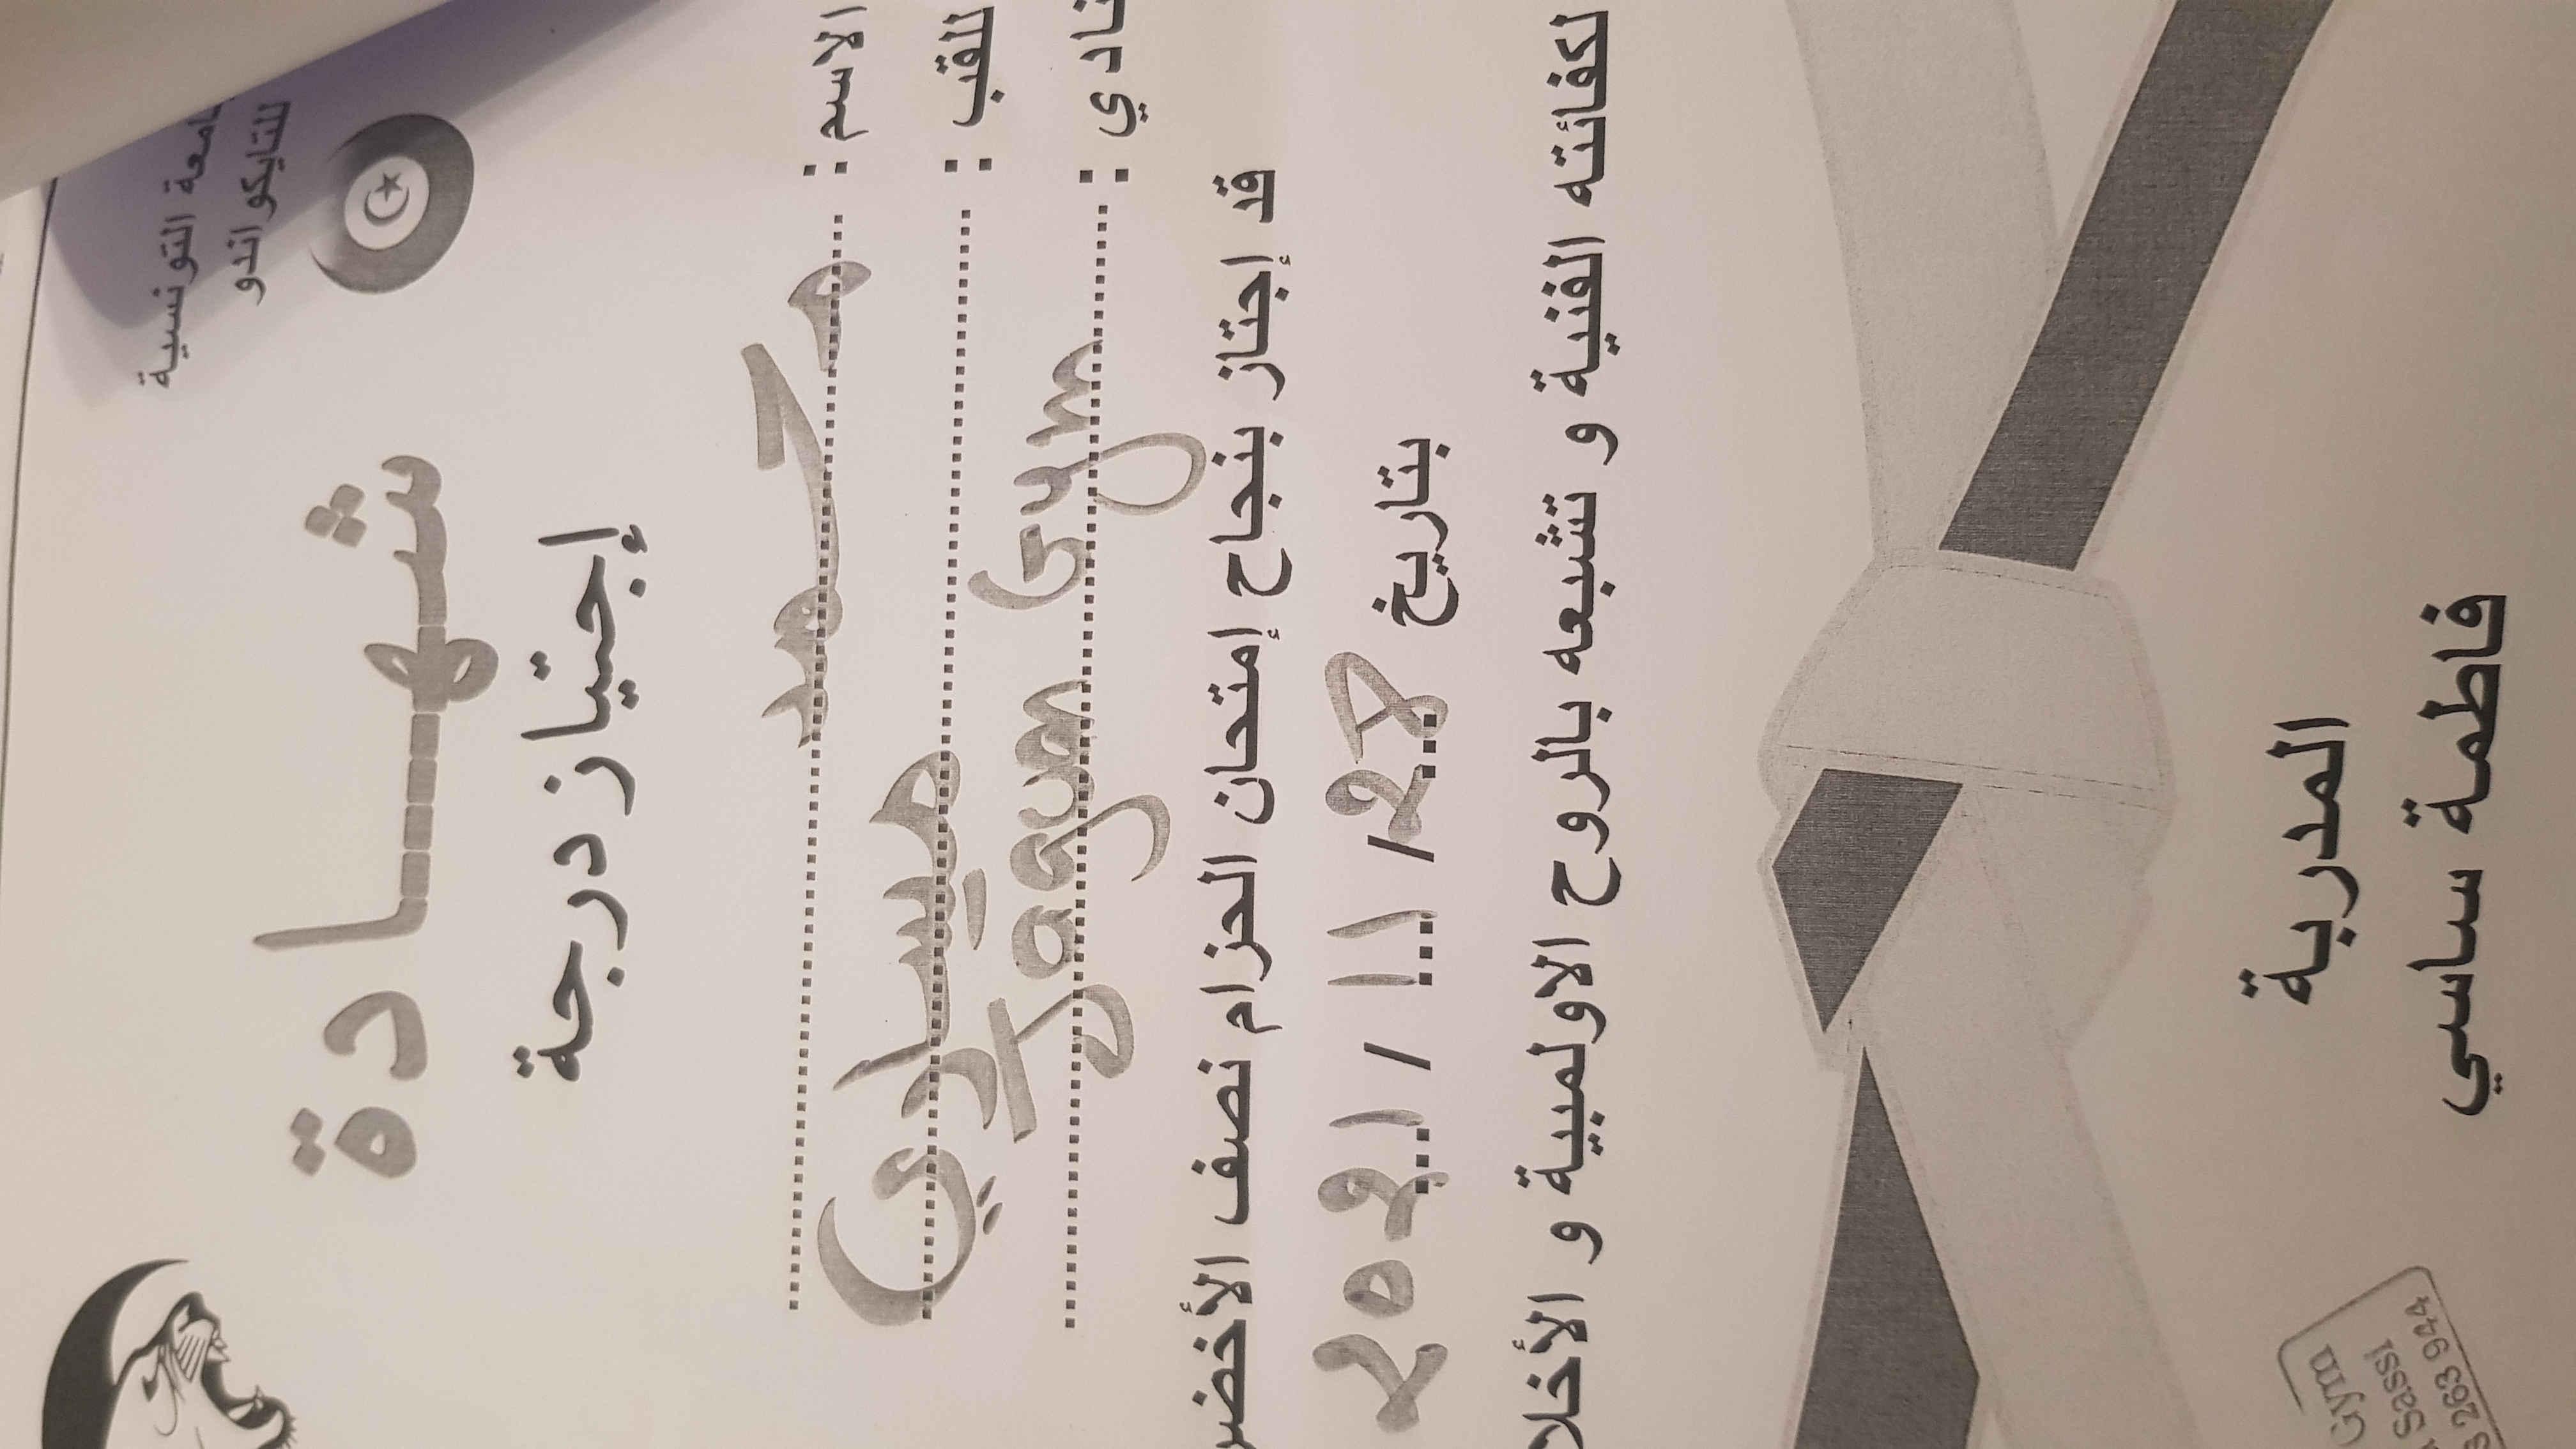 الجامعة التونسية
للتايكواندو
شهادة
إجتياز درجة
الاسم : محمد
اللقب : عيساوي
النادي : Jagum Gym
قد إجتاز بنجاح إمتحان الحزام نصف الأخضر
بتاريخ 28 / 11 / 2021
لكفائته الفنية و تشبعه بالروح الاولمبية و الأخلا
المدربة
فاطمة ساسي
Gym
Sassi
263 944